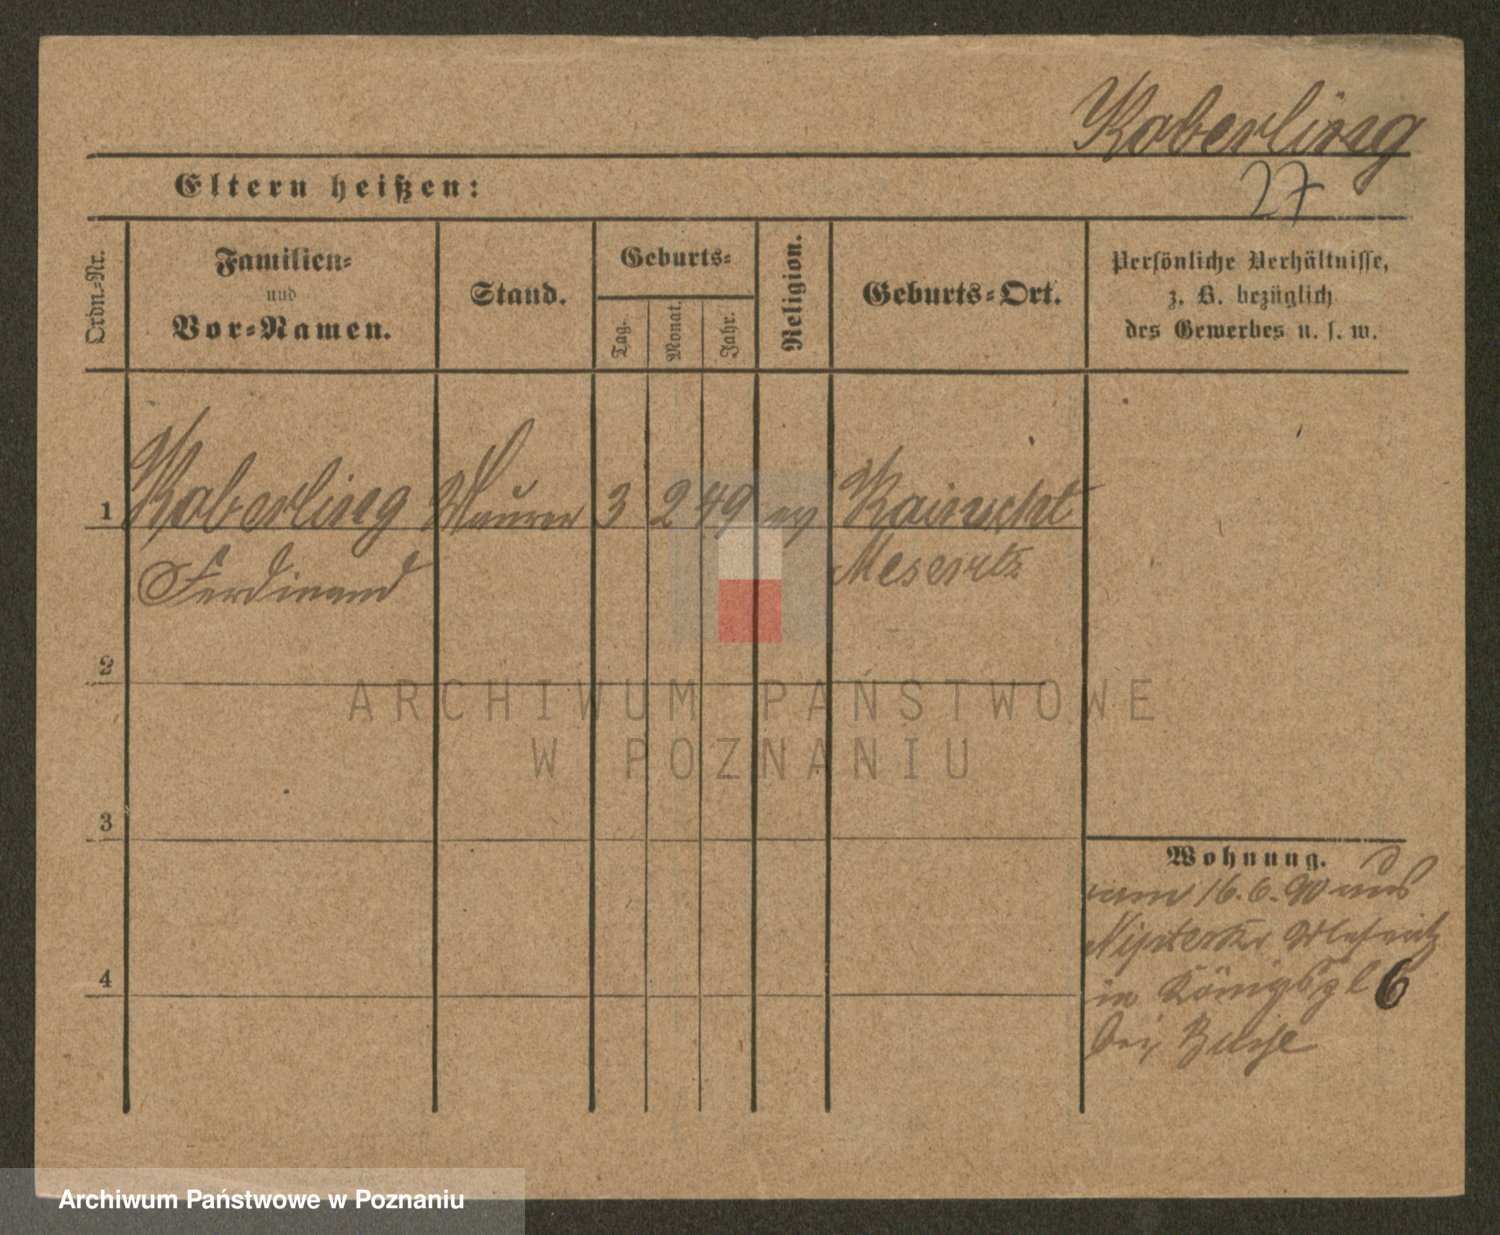 Kaberling
Eltern heißen:
27
Ordn.-Nr.
Familien-
und
Vor-Namen.
Stand.
Geburts-
Tag.
Monat.
Jahr.
Religion.
Geburts-Ort.
Persönliche Verhältnisse,
z. B. bezüglich
des Gewerbes u. s. w.
1 Kaberling Maurer 3 2 49 ev
Ferdinand
2
3
4
Wohnung.
am 16.6.90 aus
in Königspl 6
bei Busse
ARCHIWUM PAŃSTWOWE
W POZNANIU
Archiwum Państwowe w Poznaniu